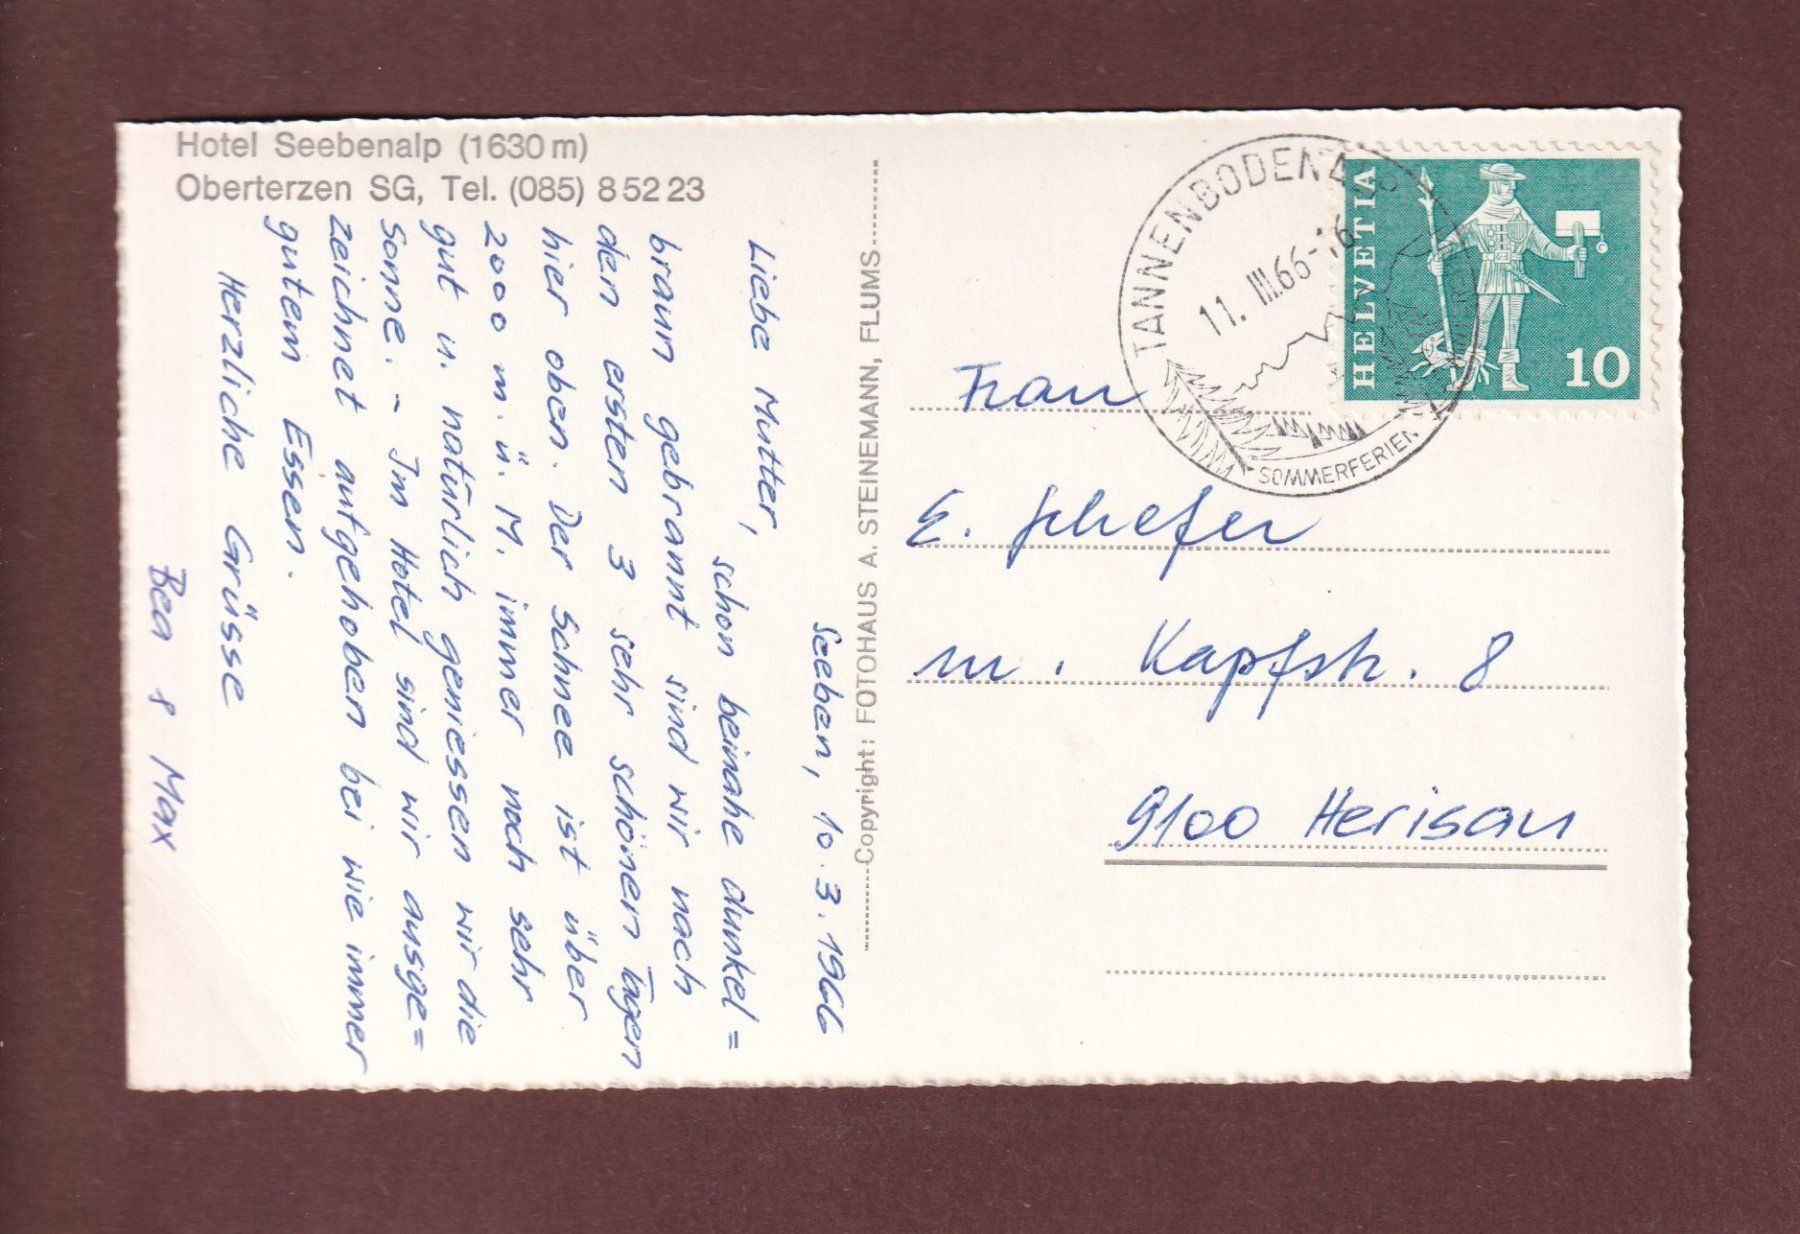 Hotel Seebenalp (1630 m)
Oberterzen SG, Tel. (085) 8 52 23
Seeben, 10.3.1966
Liebe Mutter,
schon beinahe dunkel=
braun gebrannt sind wir nach
den ersten 3 sehr schönen Tagen
hier oben. Der Schnee ist über
2000 m.ü.M. immer noch sehr
gut u. natürlich geniessen wir die
Sonne. - Im Hotel sind wir ausge=
zeichnet aufgehoben bei wie immer
gutem Essen.
Herzliche Grüsse
Bea & Max
Copyright: FOTOHAUS A. STEINEMANN, FLUMS
TANNENBODENALP
11. III.66-16
SOMMERFERIEN
HELVETIA
10
Frau
E. Schefer
m. Kapfstr. 8
9100 Herisau